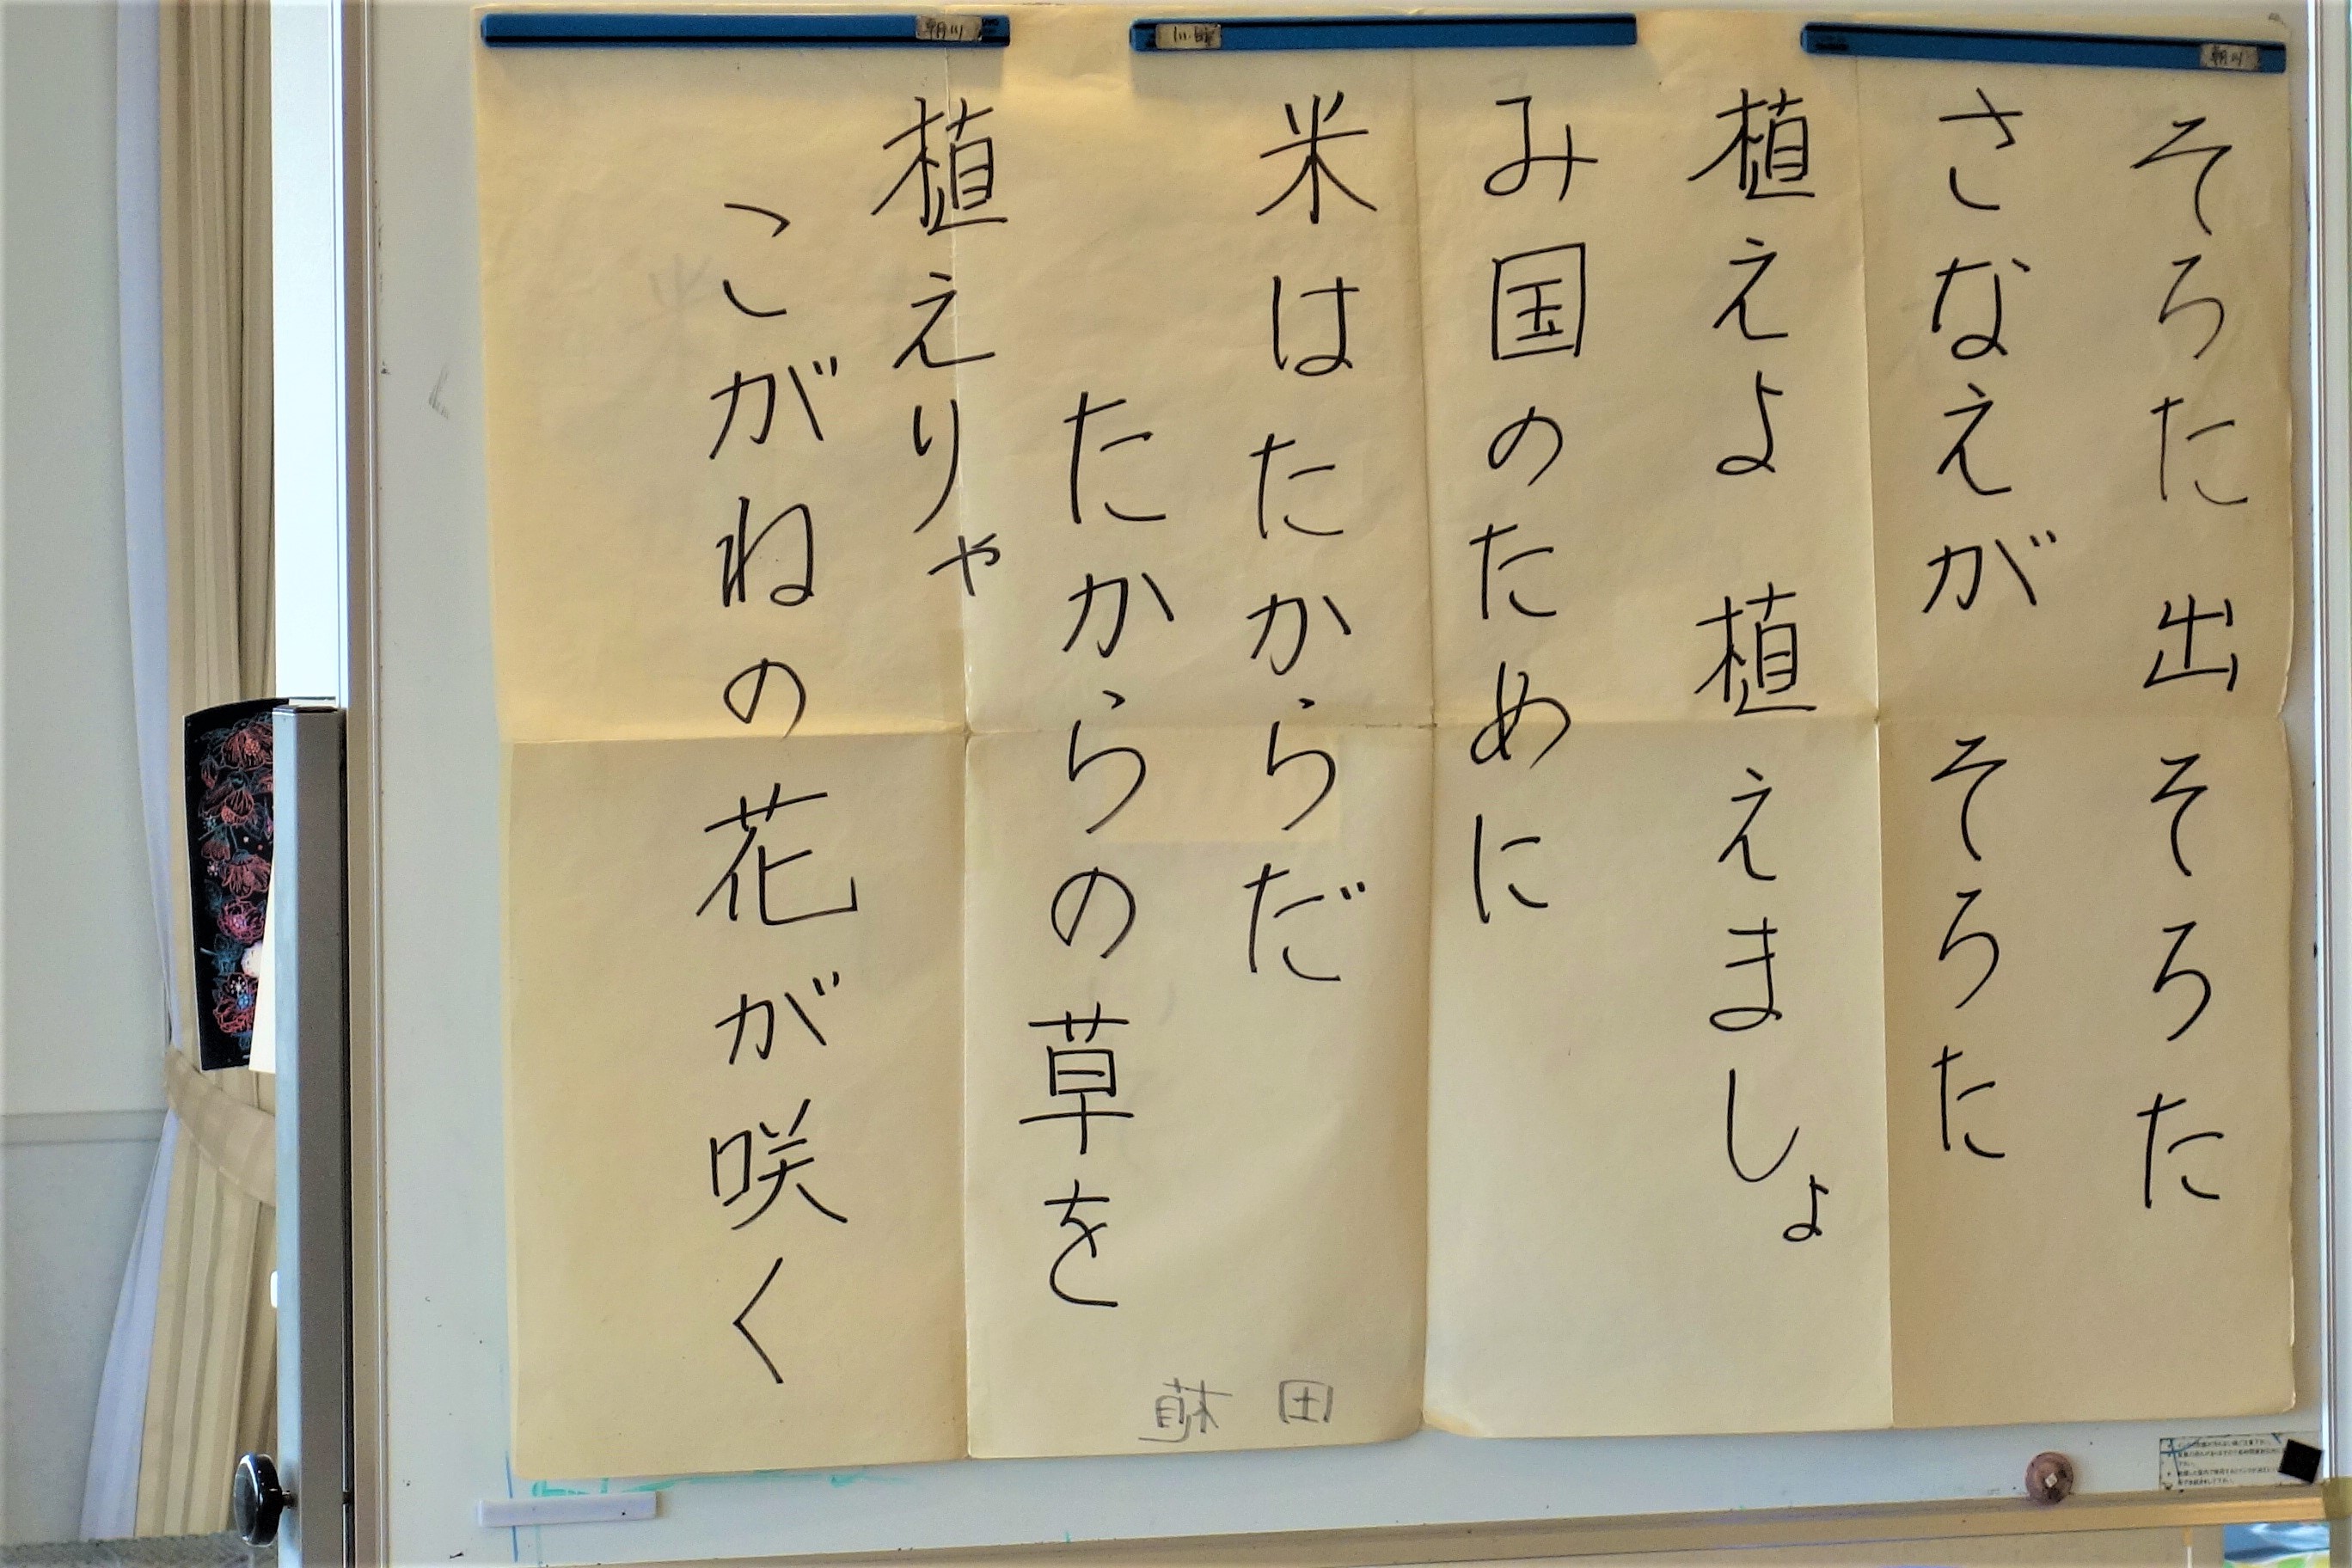 そろた 出そろた
さなえが そろた
植えよ 植えましょ
み国のために
米はたからだ
たからの草を
植えりゃ
こがねの花が咲く
田植
朝川
朝川